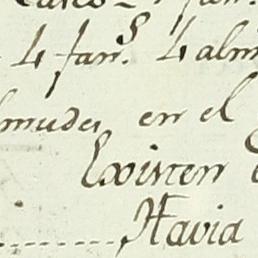 4 fan.s 4 alm
lmudes en el
Existen
Havia